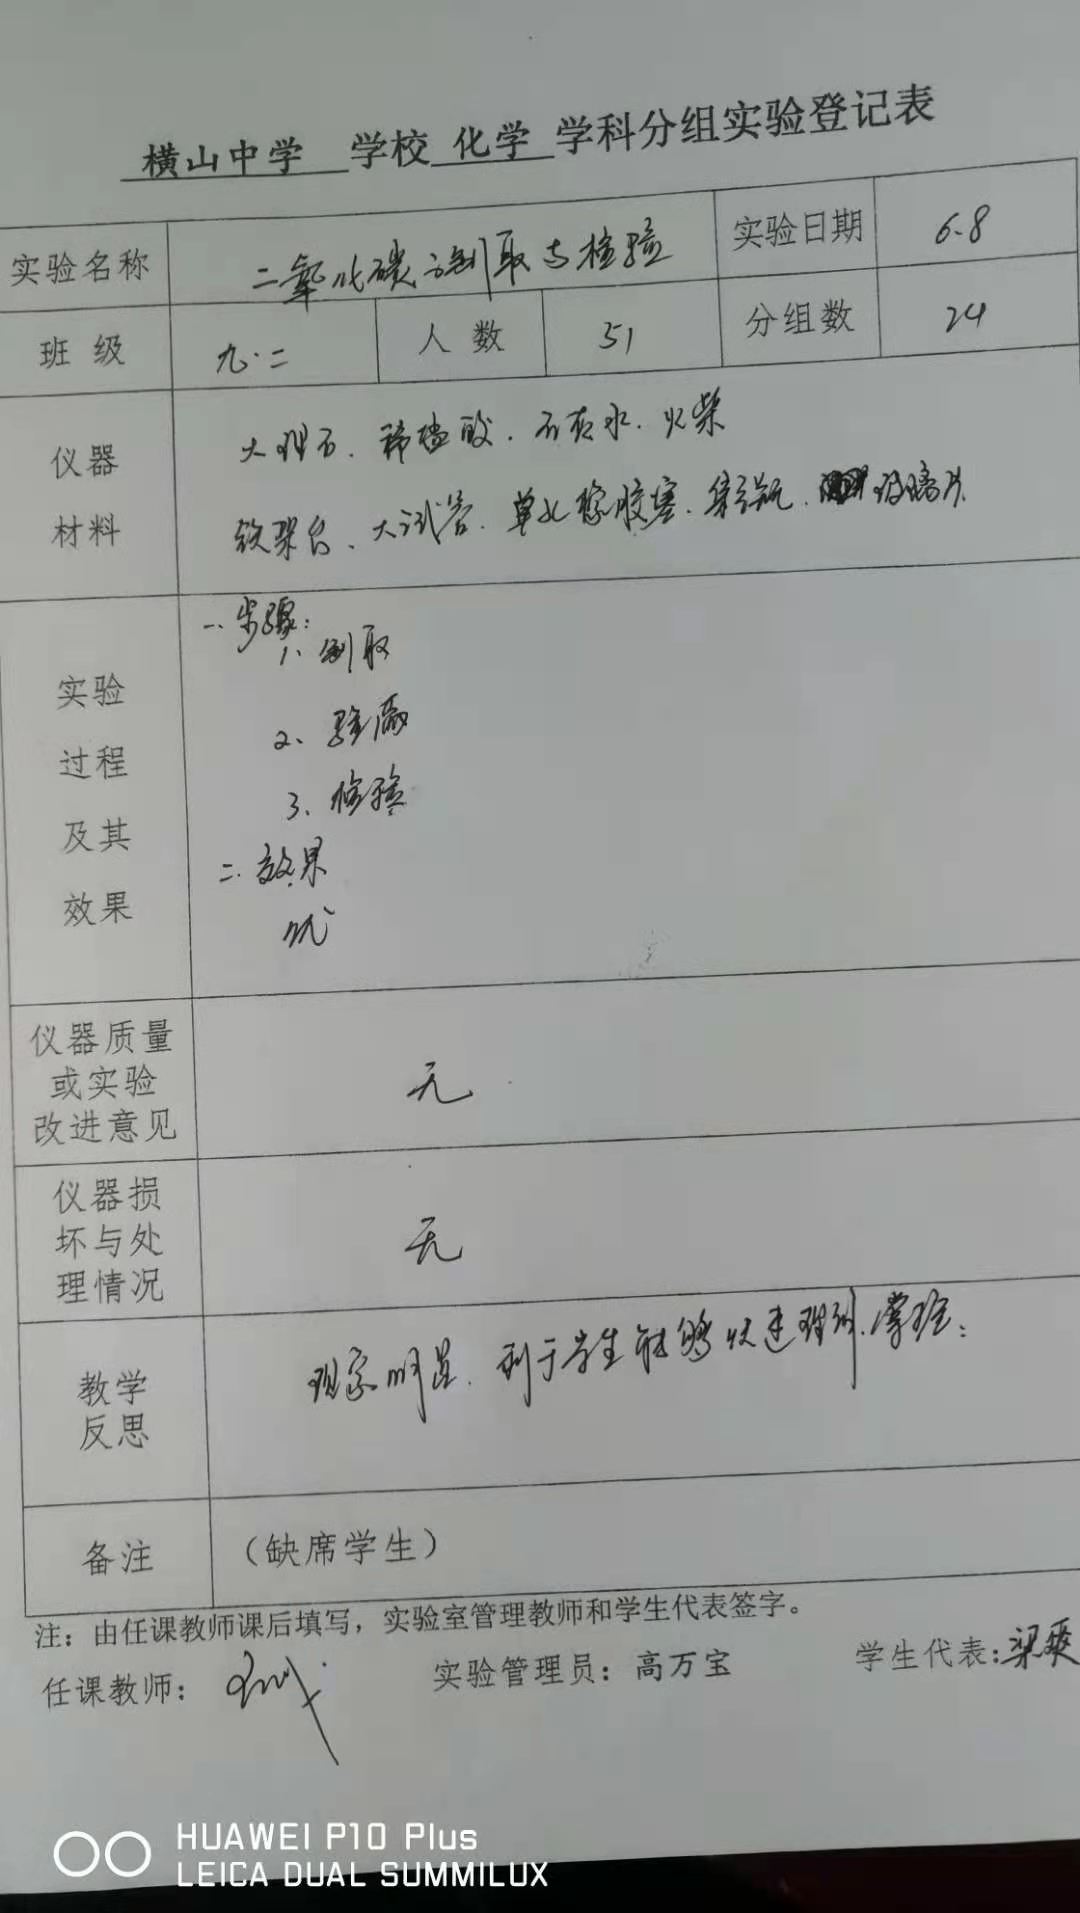 横山中学 学校 化学 学科分组实验登记表
实验名称 二氧化碳制取与检验 实验日期 6.8
班级 九.二 人数 51 分组数 24
仪器材料
大理石、稀盐酸、石灰水、火柴
铁架台、大试管、单孔橡胶塞、集气瓶、玻璃片
实验过程及其效果
一、步骤:
1、制取
2、验满
3、检验
二、效果
优
仪器质量或实验改进意见 无
仪器损坏与处理情况 无
教学反思 现象明显、利于学生能够快速理解、掌握;
备注 (缺席学生)
注:由任课教师课后填写,实验室管理教师和学生代表签字。
任课教师: 实验管理员:高万宝 学生代表:梁爽
HUAWEI P10 Plus
LEICA DUAL SUMMILUX